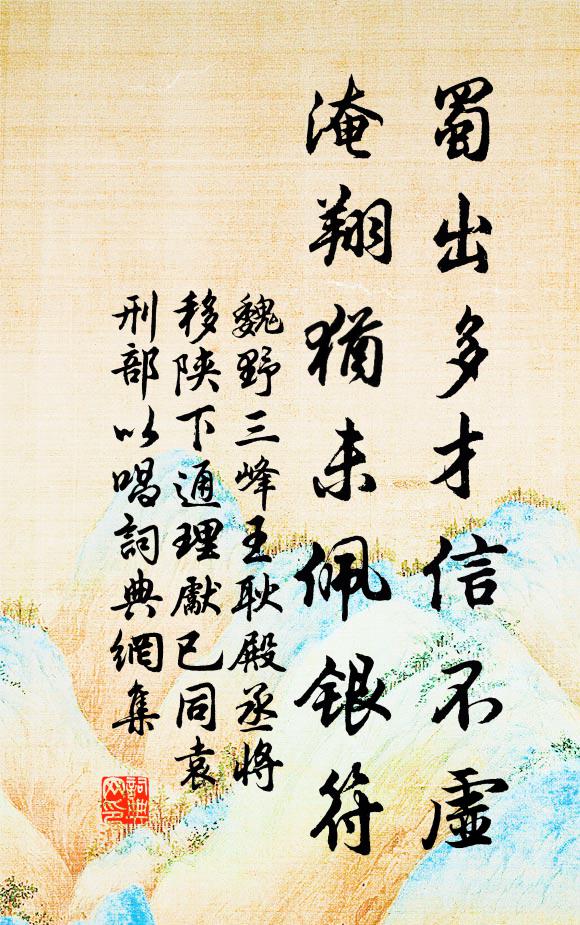 蜀出多才信不虛
淹翔猶未佩銀符
魏野三峰王耿殿丞將
移陝下通理獻已同袁
刑部以唱詞典網集
詞典網印